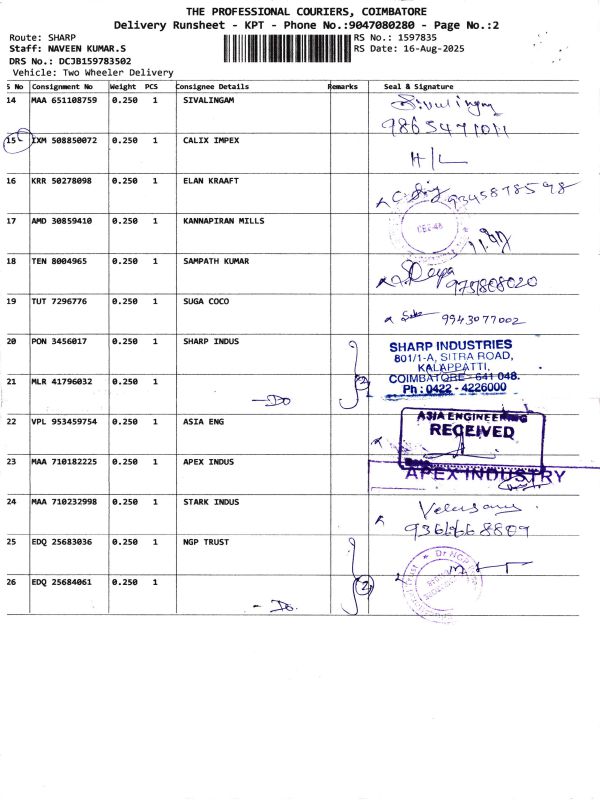 THE PROFESSIONAL COURIERS, COIMBATORE
Delivery Runsheet - KPT - Phone No.:9047080280 - Page No.:2
Route: SHARP
RS No.: 1597835
Staff: NAVEEN KUMAR.S
RS Date: 16-Aug-2025
DRS No.: DCJB159783502
Vehicle: Two Wheeler Delivery
S No Consignment No Weight PCS Consignee Details Remarks Seal & Signature
14 MAA 651108759 0.250 1 SIVALINGAM Sivalingam
9865471011
15 IXM 508850072 0.250 1 CALIX IMPEX H/L
16 KRR 50278098 0.250 1 ELAN KRAAFT 9345878598
17 AMD 30859410 0.250 1 KANNAPIRAN MILLS
18 TEN 8004965 0.250 1 SAMPATH KUMAR 9751808020
19 TUT 7296776 0.250 1 SUGA COCO 9943077002
20 PON 3456017 0.250 1 SHARP INDUS
SHARP INDUSTRIES
801/1-A, SITRA ROAD,
KALAPPATTI,
COIMBATORE - 641 048.
Ph : 0422 - 4226000
21 MLR 41796032 0.250 1 - Do 2
22 VPL 953459754 0.250 1 ASIA ENG
ASIA ENGINEERING
RECEIVED
23 MAA 710182225 0.250 1 APEX INDUS
APEX INDUSTRY
24 MAA 710232998 0.250 1 STARK INDUS
25 EDQ 25683036 0.250 1 NGP TRUST
Dr NGP
26 EDQ 25684061 0.250 1 - Do. 2